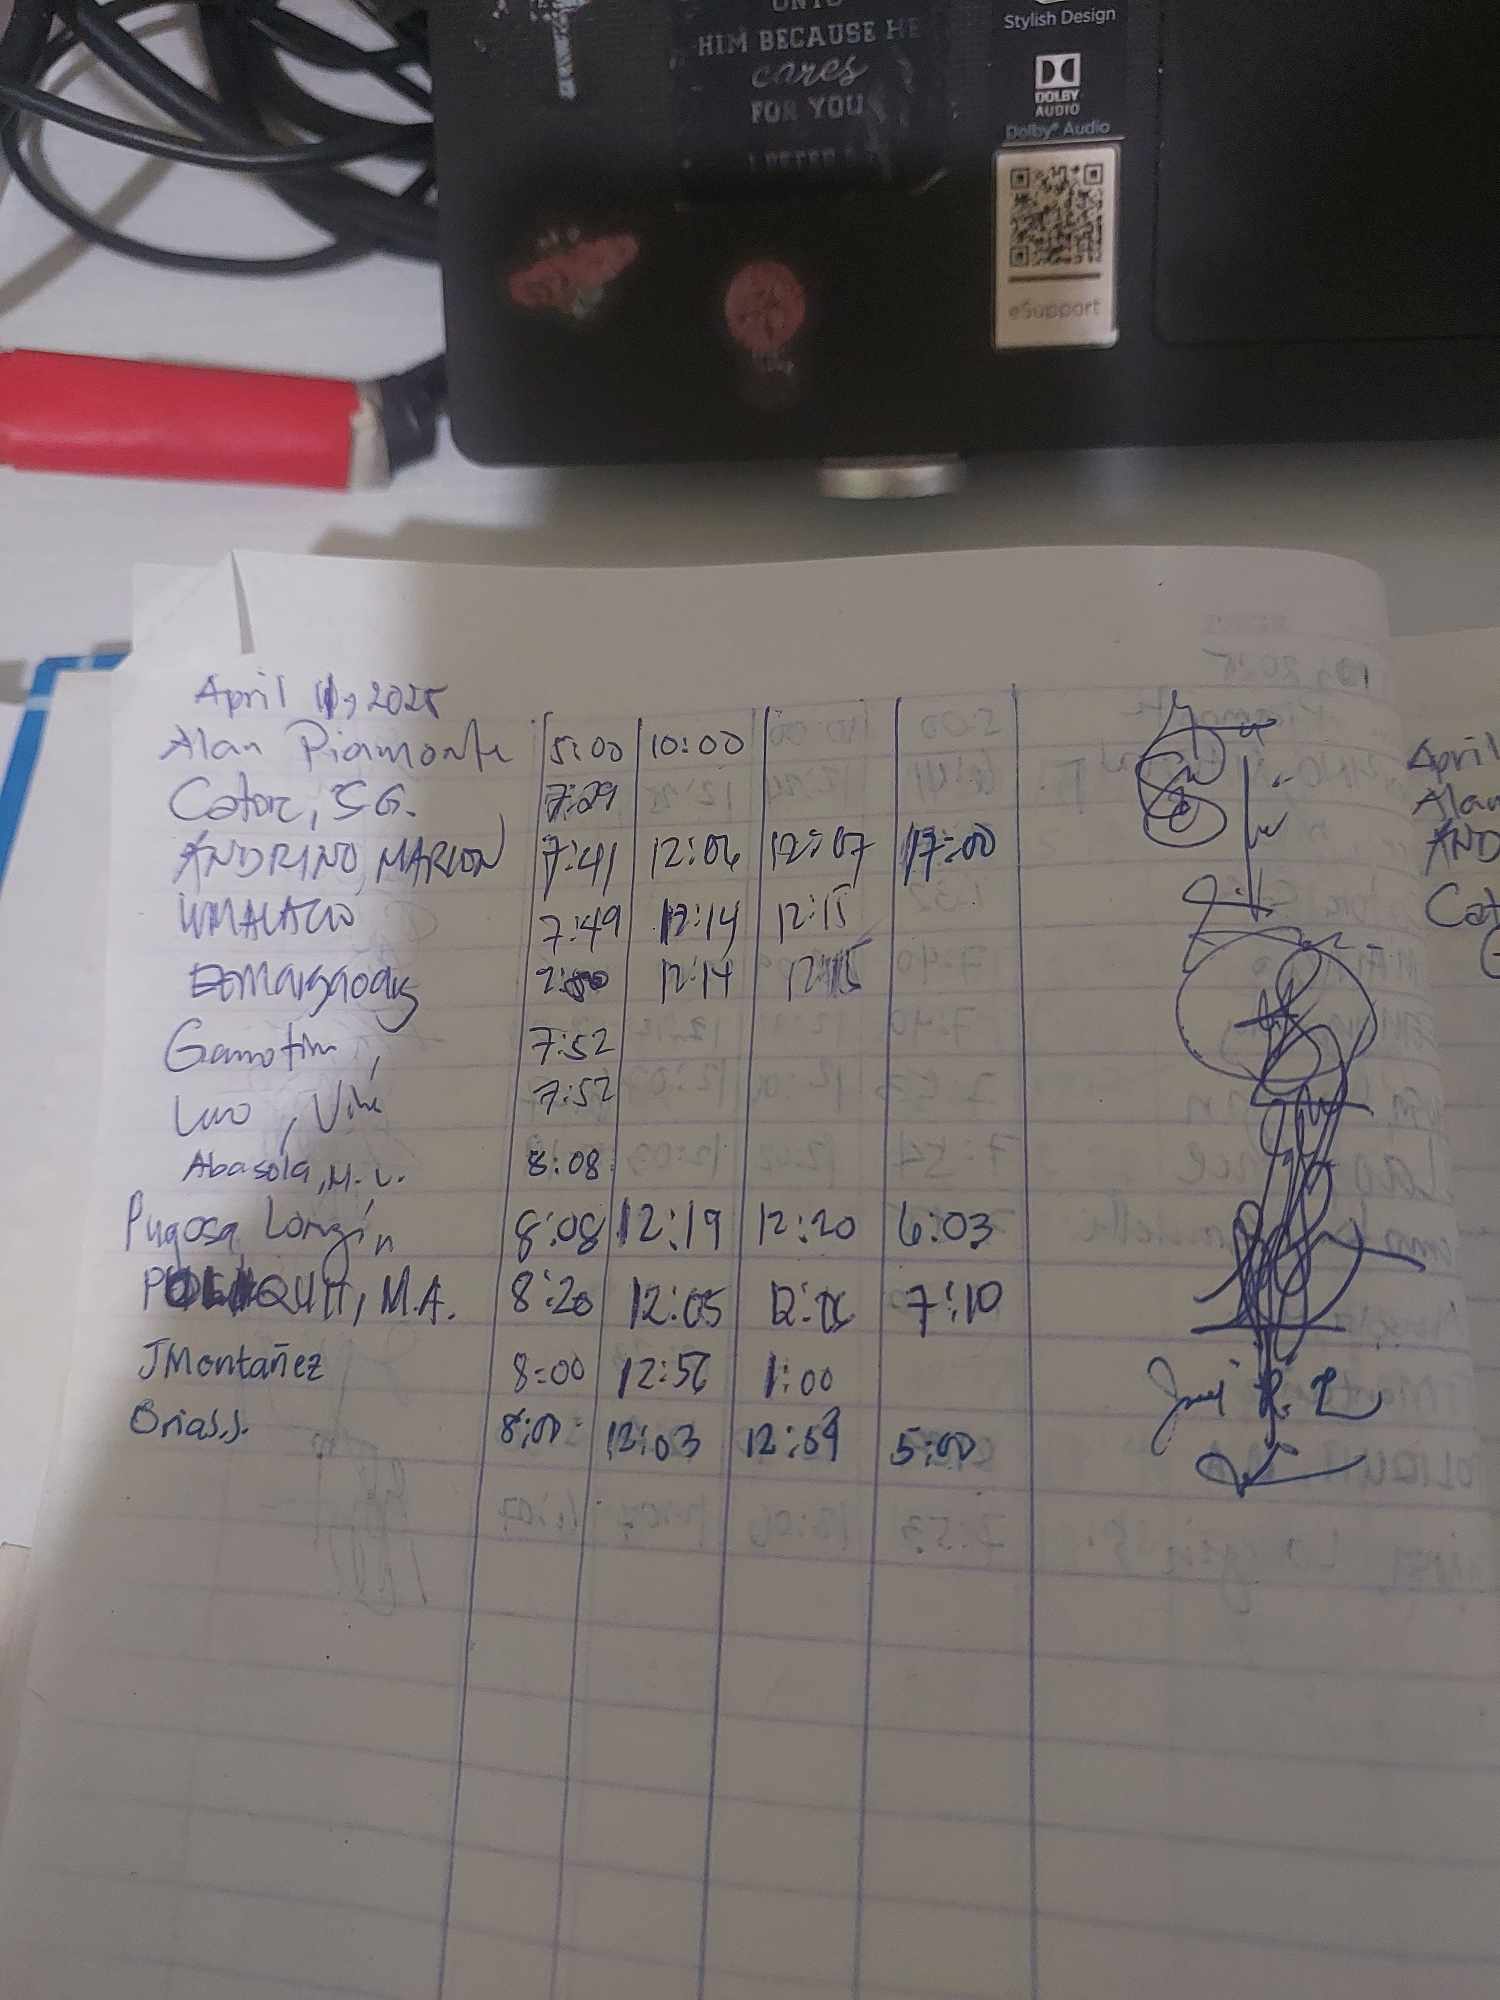 ONTO
HIM BECAUSE HE
cares
FOR YOU
1 PETER 5
Stylish Design
DOLBY
AUDIO
Dolby® Audio
eSupport
April 11, 2025
Alan Piamonte 5:00 10:00
Cator, SG. 7:29
ANDRINO, MARLON 7:41 12:06 12:07 17:00
7:49 12:14 12:15
12:14 12:15
Gamotin, 7:52
Vine 7:52
Abasola, M.L. 8:08
Pugosa Longin 8:08 12:19 12:20 6:03
POLIQUIT, M.A. 8:20 12:05 12:06 7:10
JMontañez 8:00 12:56 1:00
Orias.s. 8:00 12:03 12:59 5:00
April
Alan
AND
Cat